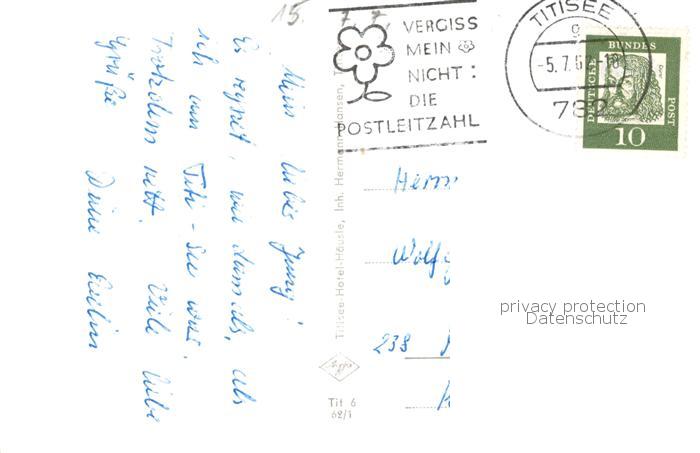 15. 7. 7.
VERGISS
MEIN
NICHT:
DIE
POSTLEITZAHL
TITISEE
g
-5.7.6
782
DEUTSCHE BUNDES POST
10
Mein liebes Jung!
Es regnet, wie damals, als
ich am Titi-See war.
Trotzdem nett. Viele liebe
Grüße Deine Evelin
Titisee-Hotel-Häusle, Inh. Hermann Hansen, T
Agfa
Tit 6
62/1
Herrn
Wolfg
238
privacy protection
Datenschutz